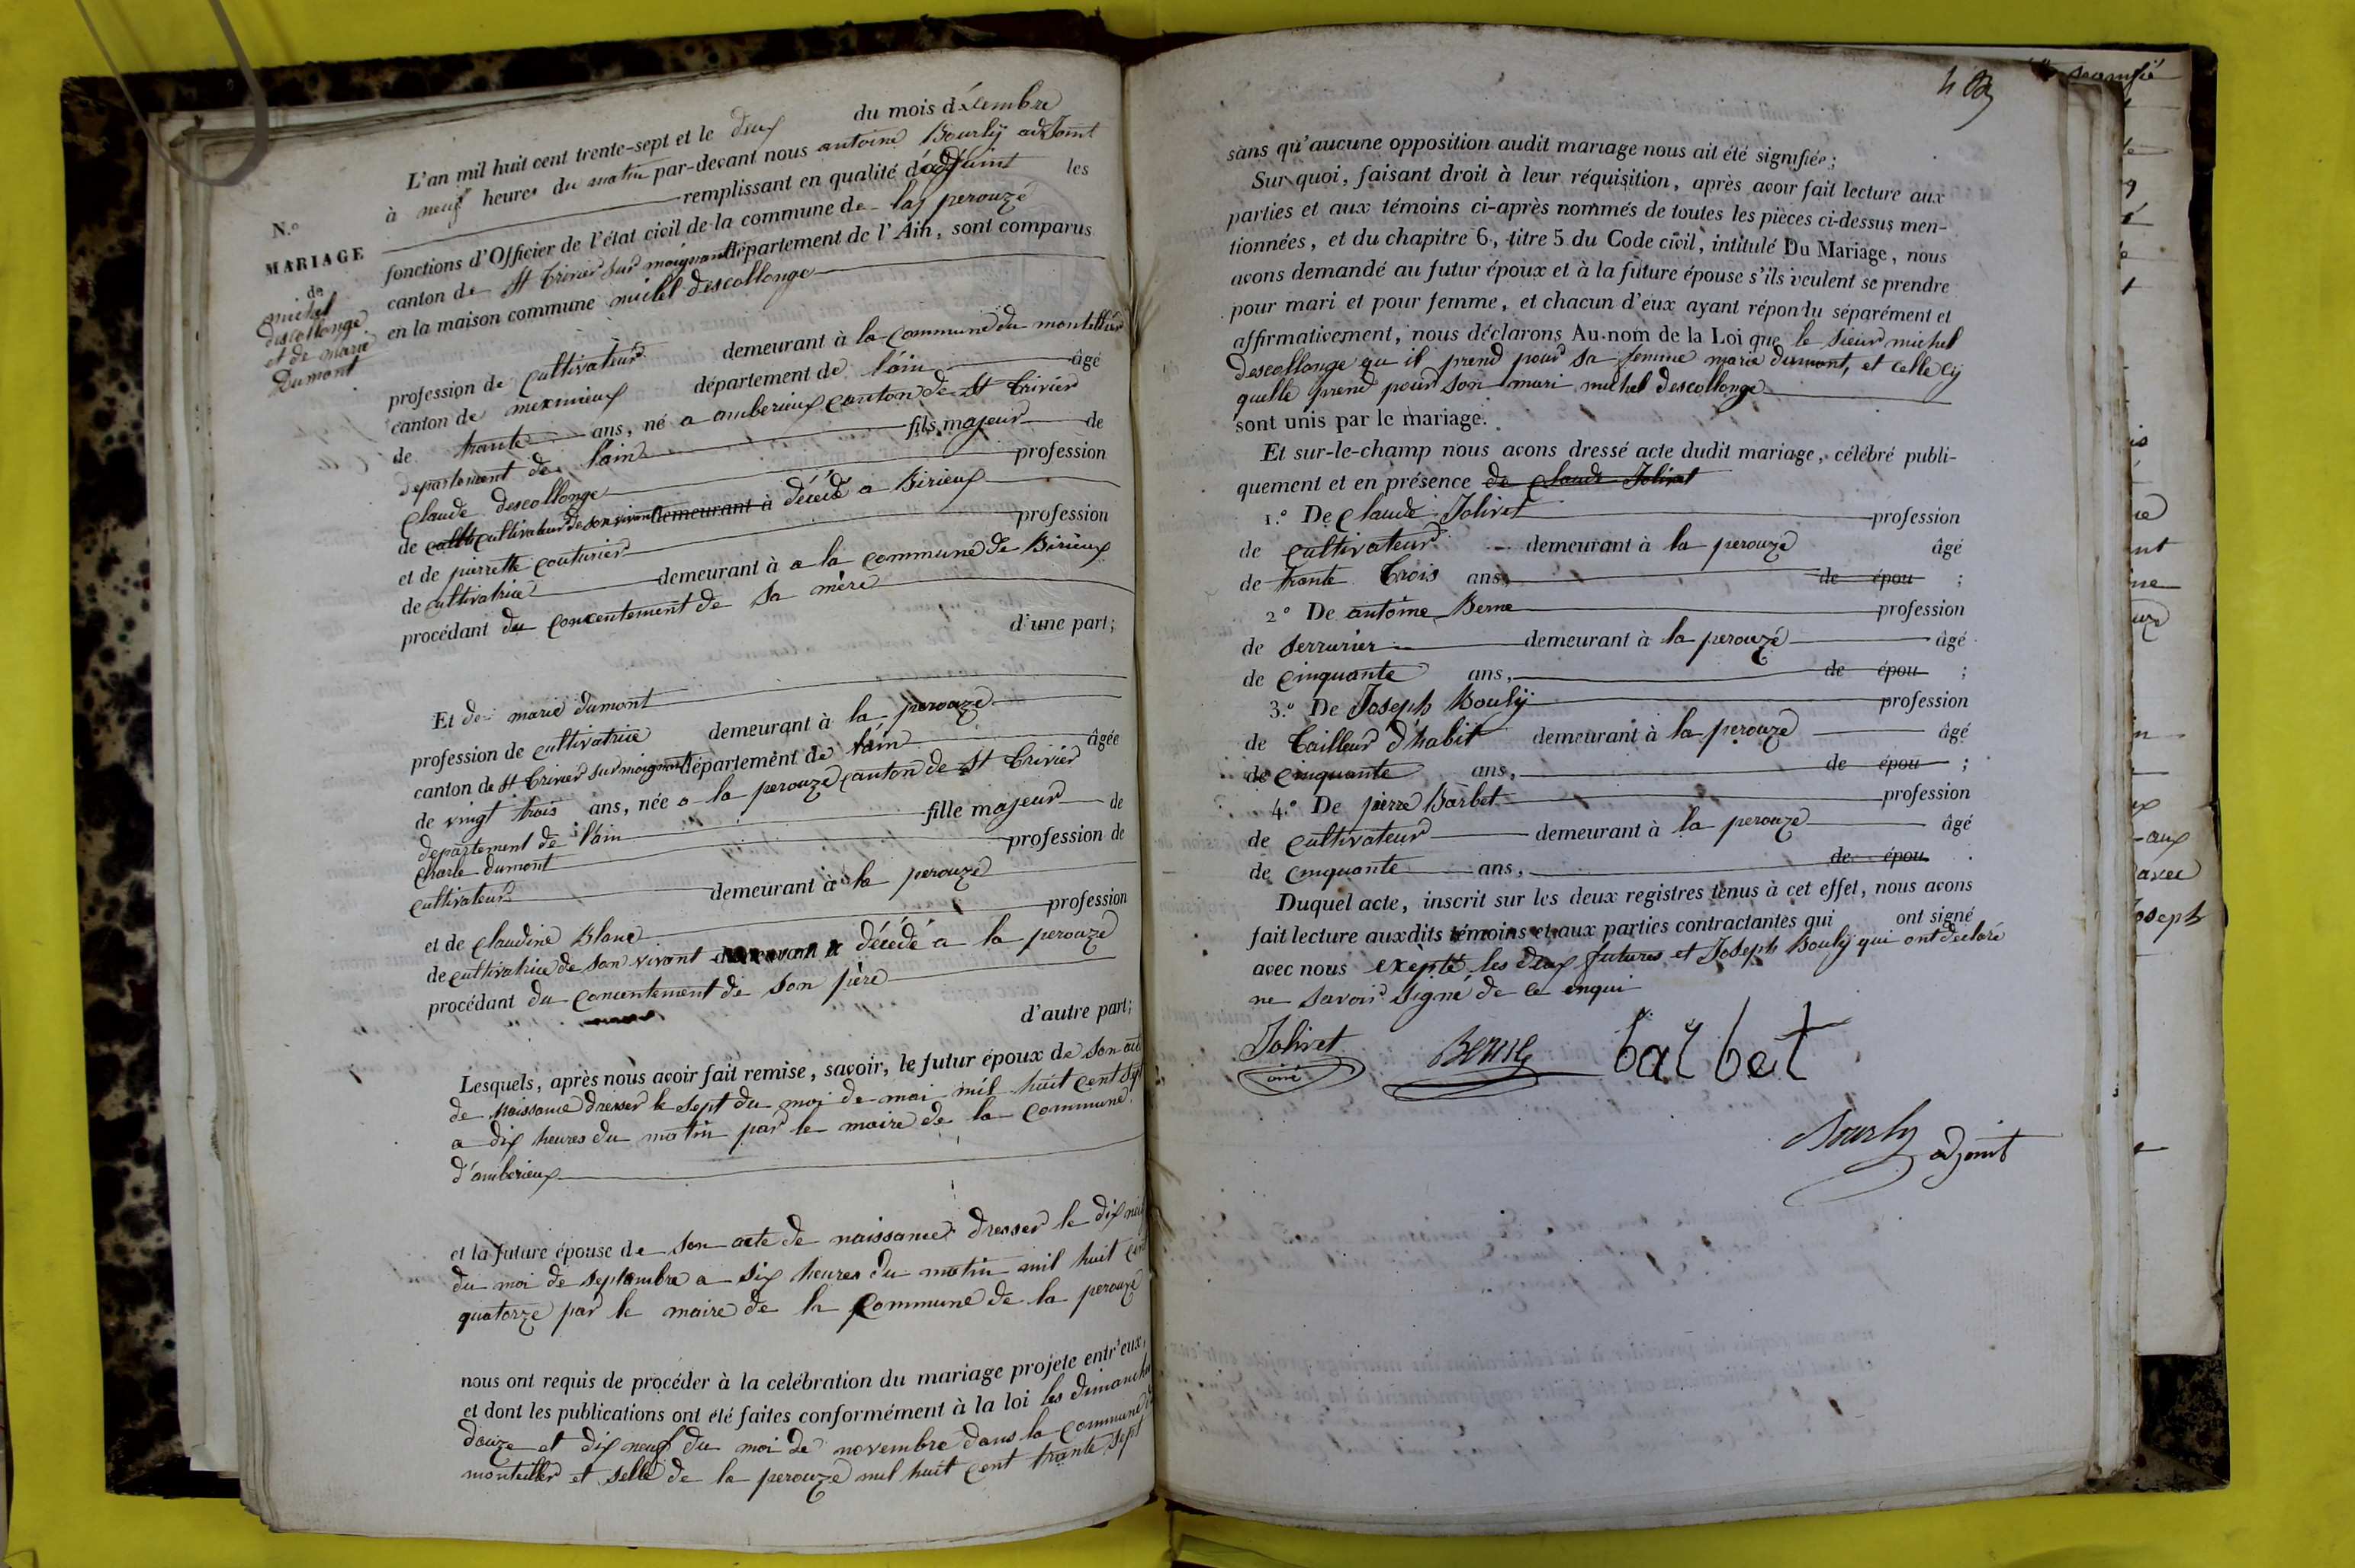 L'an mil huit cent trente-sept et le deux du mois décembre
à neuf heures du matin par-devant nous antoine Bourly adjoint
remplissant en qualité d'adjoint les
N.o
MARIAGE
de
michel
descollonge
et de marie
Dumont
fonctions d'Officier de l'état civil de la commune de la perouze
canton de St trivier sur moignant département de l'Ain, sont comparus
en la maison commune michel descollonge
profession de cultivateur demeurant à la commune du montellier
canton de meximieux département de l'ain âgé
de trante ans, né a amberieux canton de St trivier
departement de l'ain fils majeur de
Claude descollonge profession
de cultivateur de son vivant demeurant à décédé a Birieux
et de pierrette couturier profession
de cultivatrice demeurant à a la commune de Birieux
procédant du concentement de sa mère
d'une part;
Et de marie dumont
profession de cultivatrice demeurant à la perouze
canton de St trivier sur moignant département de l'ain âgée
de vingt trois ans, née a la perouze canton de St trivier
departement de l'ain fille majeur de
Charle dumont profession de
cultivateur demeurant à la perouze
et de claudine Blanc profession
de cultivatrice de son vivant décédé a la perouze
procédant du concentement de son père
d'autre part;
Lesquels, après nous avoir fait remise, savoir, le futur époux de son acte
de naissance dresser le sept du moi de mai mil huit cent sept
a dix heures du matin par le maire de la commune
d'amberieux
et la future épouse de son acte de naissance dresser le dix neuf
du moi de septembre a six heures du matin mil huit cent
quatorze par le maire de la commune de la perouze
nous ont requis de procéder à la celébration du mariage projeté entr'eux,
et dont les publications ont été faites conformément à la loi les dimanches
douze et dix neuf du moi de novembre dans la commune de
monteiller et selle de la perouze mil huit cent trante sept
sans qu'aucune opposition audit mariage nous ait été signifiée;
Sur quoi, faisant droit à leur réquisition, après avoir fait lecture aux
parties et aux témoins ci-après nommés de toutes les pièces ci-dessus men-
tionnées, et du chapitre 6, titre 5 du Code civil, intitulé Du Mariage, nous
avons demandé au futur époux et à la future épouse s'ils veulent se prendre
pour mari et pour femme, et chacun d'eux ayant répondu séparément et
affirmativement, nous déclarons Au nom de la Loi que le sieur michel
descollonge qu il prend pour sa femme marie dumont, et celle cy
quelle prend pour son mari michel descollonge
sont unis par le mariage.
Et sur-le-champ nous avons dressé acte dudit mariage, célébré publi-
quement et en présence de Claude Jolivet
1.o De Claude Jolivet profession
de cultivateur demeurant à la perouze âgé
de trante trois ans, de épou ;
2.o De antoine Berne profession
de serrurier demeurant à la perouze âgé
de cinquante ans, de épou ;
3.o De Joseph Bouly profession
de tailleur d'habit demeurant à la perouze âgé
de cinquante ans, de épou ;
4.o De pierre Barbet profession
de cultivateur demeurant à la perouze âgé
de cinquante ans, de épou .
Duquel acte, inscrit sur les deux registres tenus à cet effet, nous avons
fait lecture auxdits témoins et aux parties contractantes qui ont signé
avec nous exepté les deux futures et Joseph Bouly qui ont declaré
ne savoir signé de ce enqui
Jolivet Berne barbet
Bourly adjoint